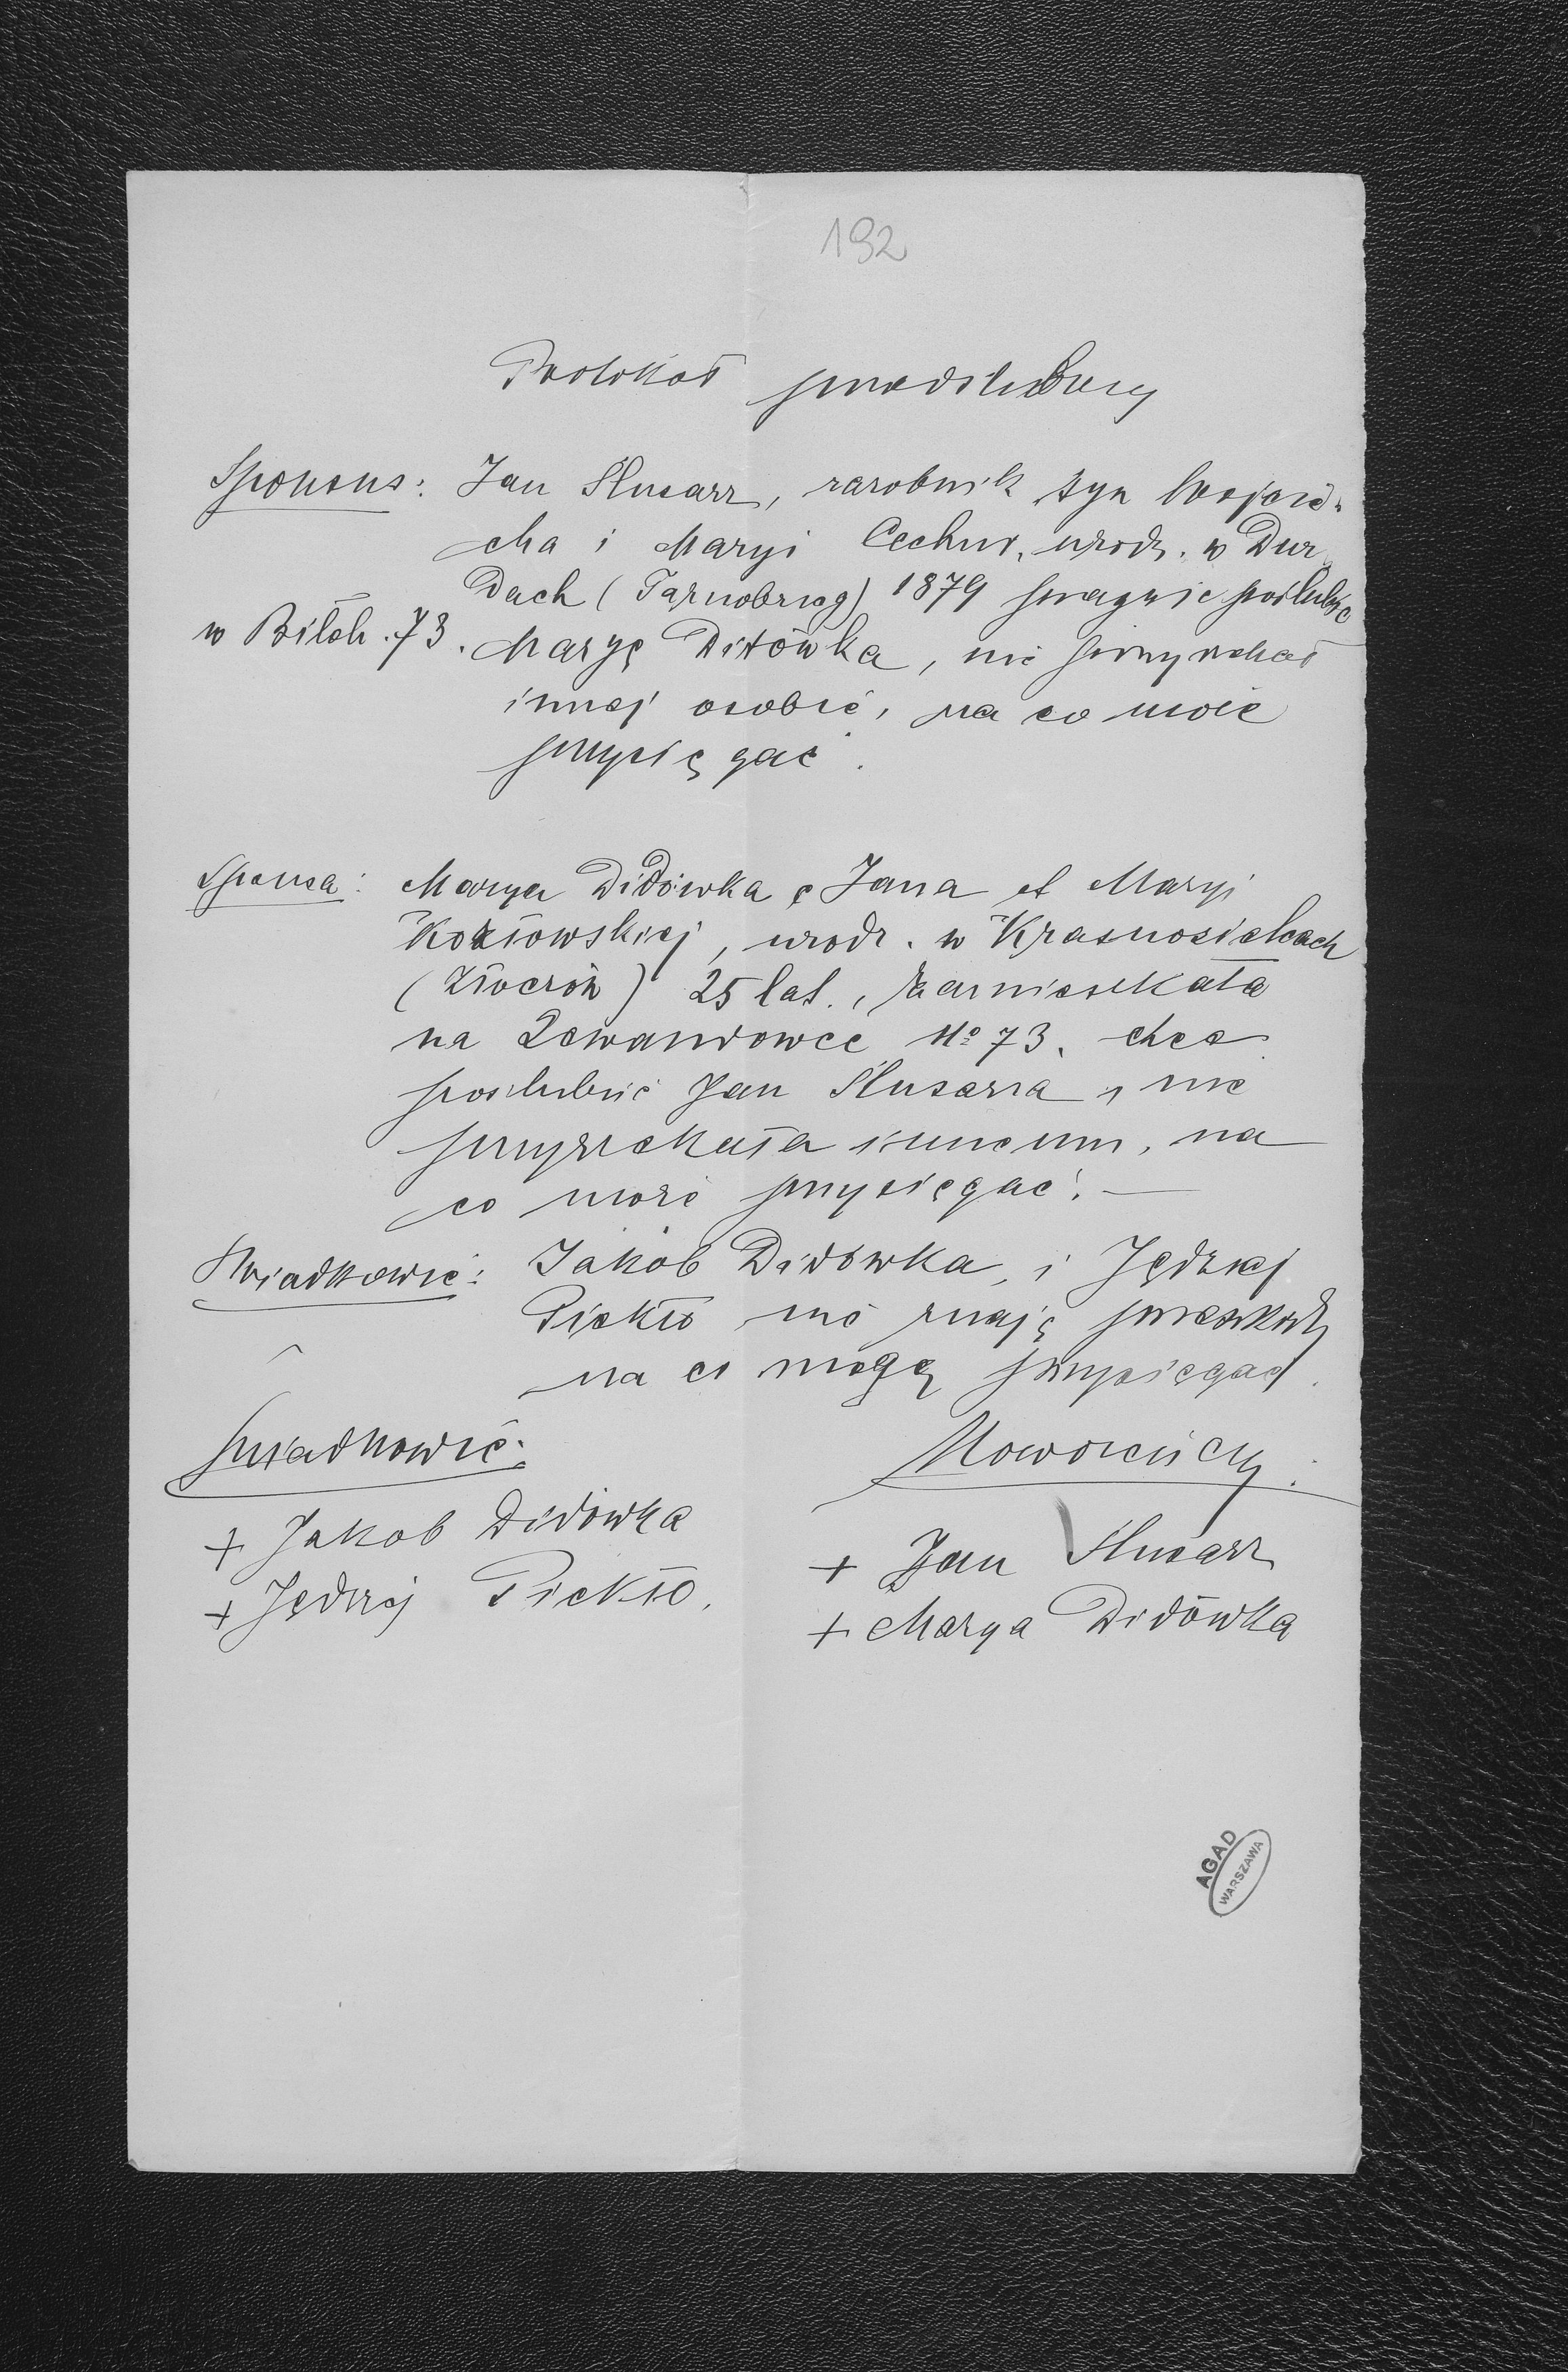 192
Protokoł przedślubny
Sponsus: Jan Ślusarz, zarobnik syn Wojcie-
cha i Maryi Cechur, urodz. w Dur
dach (Tarnobrzeg) 1879 pragnie poślubić
w Biloh. 73. Maryę Didówka, nie przyrzekał
innej osobie, na co może
przysięgać.
Sponsa: Marya Didówka c Jana et Maryi
Kozłowskiej, urodz. w Krasnosielcach
(Złoczów) 25 lat., zamieszkała
na Lewandowce No 73. chce
poślubić Jan Ślusarza, nie
przyrzekała innemu, na
co może przysięgać. —
Świadkowie: Jakób Didówka, i Jędrzej
Piekło nie znają przeszkody
na co mogą przysięgać.
Świadkowie:
Nowożeńcy:
+ Jakob Didówka
+ Jędrzej Piekło.
+ Jan Ślusarz
+ Marya Didówka
AGAD
WARSZAWA